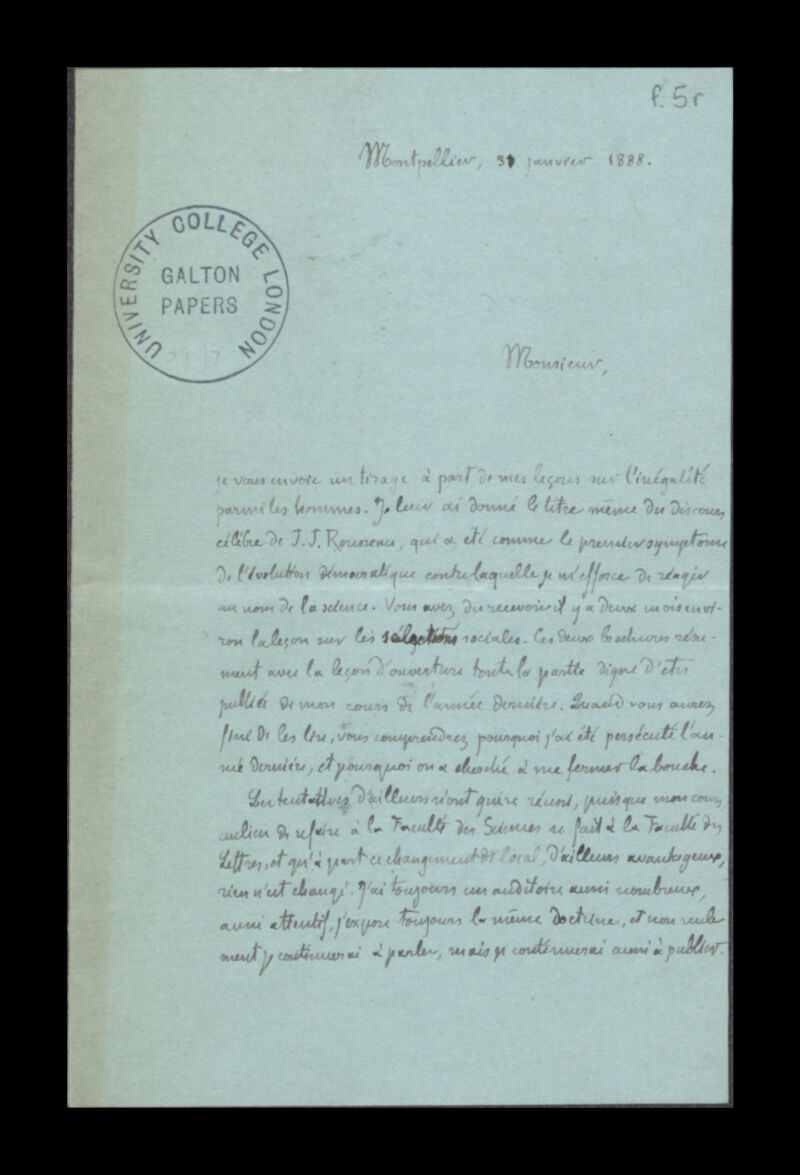 f. 5r
Montpellier, 31 janvier 1888.
UNIVERSITY COLLEGE LONDON
GALTON
PAPERS
Monsieur,
je vous envoie un tirage à part de mes leçons sur l'inégalité
parmi les hommes. Je leur ai donné le titre même du discours
célèbre de J. J. Rousseau, qui a été comme le premier symptome
de l'évolution démocratique contre laquelle je m'efforce de réagir
au nom de la science. Vous avez du recevoir il y a deux mois envi-
ron la leçon sur les sélections sociales. Ces deux brochures résu-
ment avec la leçon d'ouverture toute la partie digne d'être
publiée de mon cours de l'année dernière. Quand vous aurez
fini de les lire, vous comprendrez pourquoi j'ai été persécuté l'an-
née dernière, et pourquoi on a cherché à me fermer la bouche.
Les tentatives d'ailleurs n'ont guère réussi, puisque mon cours
au lieu de se faire à la Faculté des Sciences se fait à la Faculté des
Lettres, et qu'à part ce changement de local, d'ailleurs avantageux,
rien n'est changé. J'ai toujours un auditoire aussi nombreux,
aussi attentif, j'expose toujours la même doctrine, et non seule
ment je continuerai à parler, mais je continuerai aussi à publier.